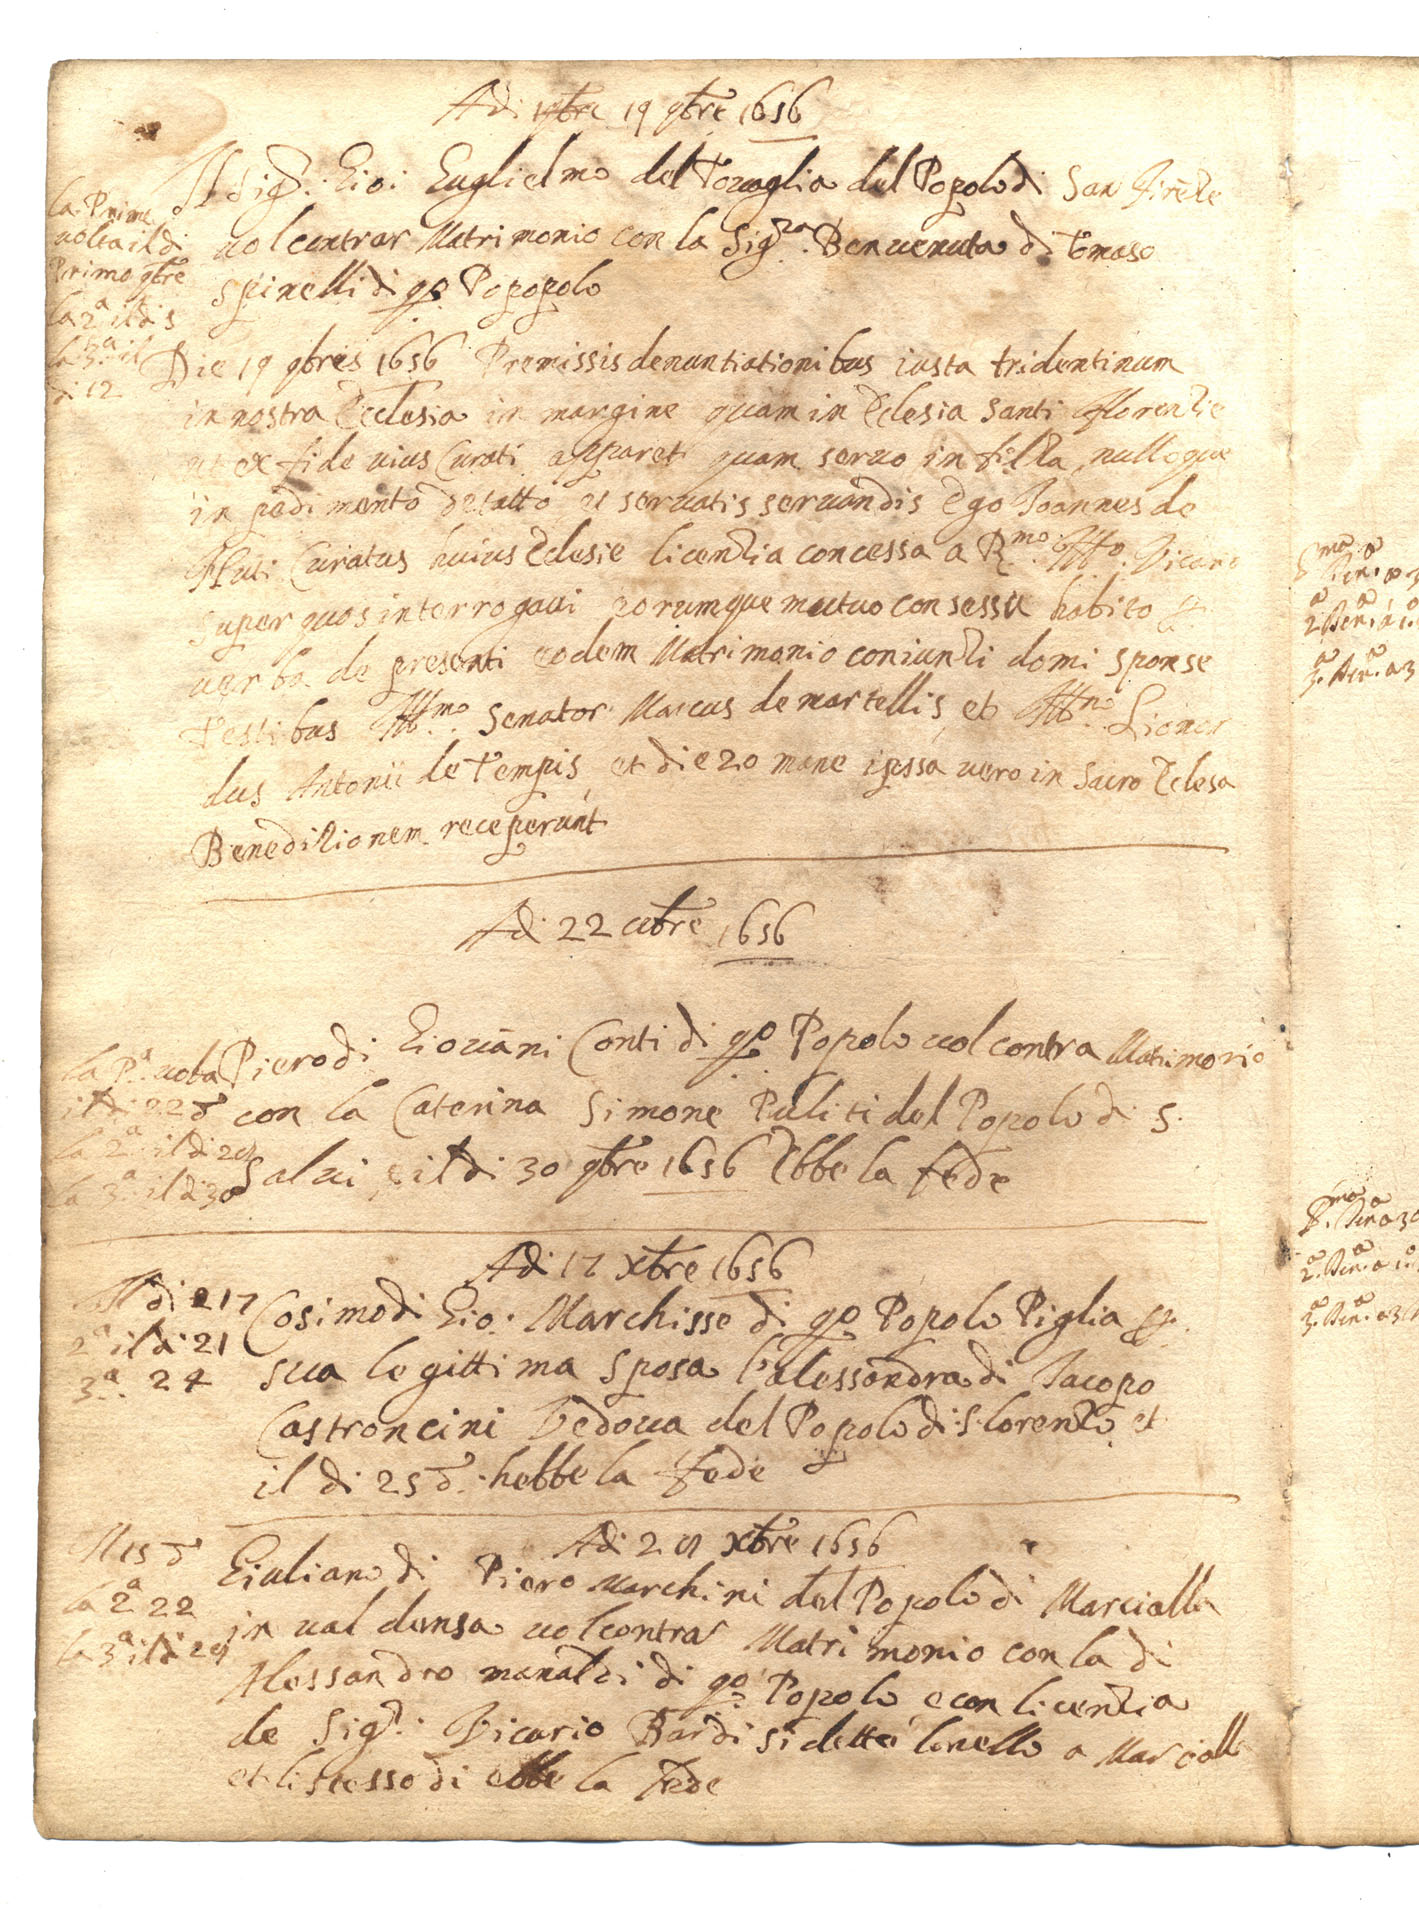 Adi 19 9bre 1656
Il Sig.r Gio: Guglielmo del Tovaglia del Popolo di San Firēze
vol contrar Matrimonio con la Sig.ra Benvenuta di Tomaso
Spinelli di qo Popopolo
la Prima
volta il di
Primo 9bre
la 2a il di 5
la 3a il
di 12
Die 19 9bres 1656 Premissis denuntiationibus iusta tridentinum
in nostra Ecclesia in margine quam in Eclesia Santi Florentie
ut ex fide uius Curati apparet quam servo in filza nulloque
in pedimento detatto et servatis servandis Ego Joannes de
Curatus huius Eclesie licentia concessa a R.mo Vicario
super quos interrogavi eorumque mutuo consessu habito
verba de presenti eodem Matrimonio coniunti domi sponse
testibus Ill.mo Senator Marcus de martellis et Ill.mo Lionar
dus Antonii de Tempis et die 20 mane ipssa vero in Sacro Eclesa
Beneditionem receperunt
Adi 22 8bre 1656
Piero di Giovāni Conti di qo Popolo vol contra Matrimonio
con la Caterina Simone Puliti del Popolo di S.
Salvi e il di 30 9bre 1656 Ebbe la fede
la Pa volta
il di 22 d
la 2a il di 29
la 3a il di 30
Adi 17 Xbre 1656
Cosimo di Gio: Marchisse di qo Popolo Piglia p.
sua legittima sposa l'alessandra di Jacopo
Castroncini Vedova del Popolo di S. lorenzo et
il di 25 d. hebbe la fede
il di 17
2a il di 21
3a 24
Adi 29 Xbre 1656
Giuliano di Piero Marchini del Popolo di Marcialla
in val densa vol contrar Matrimonio con la di
Alessandro manatzi di qo Popolo e con licentia
de Sig.r Vicario Bardi si dette lonello a Marcialla
et listesso di ebbe la fede
Il 15 d
la 2a 22
la 3a il di 29